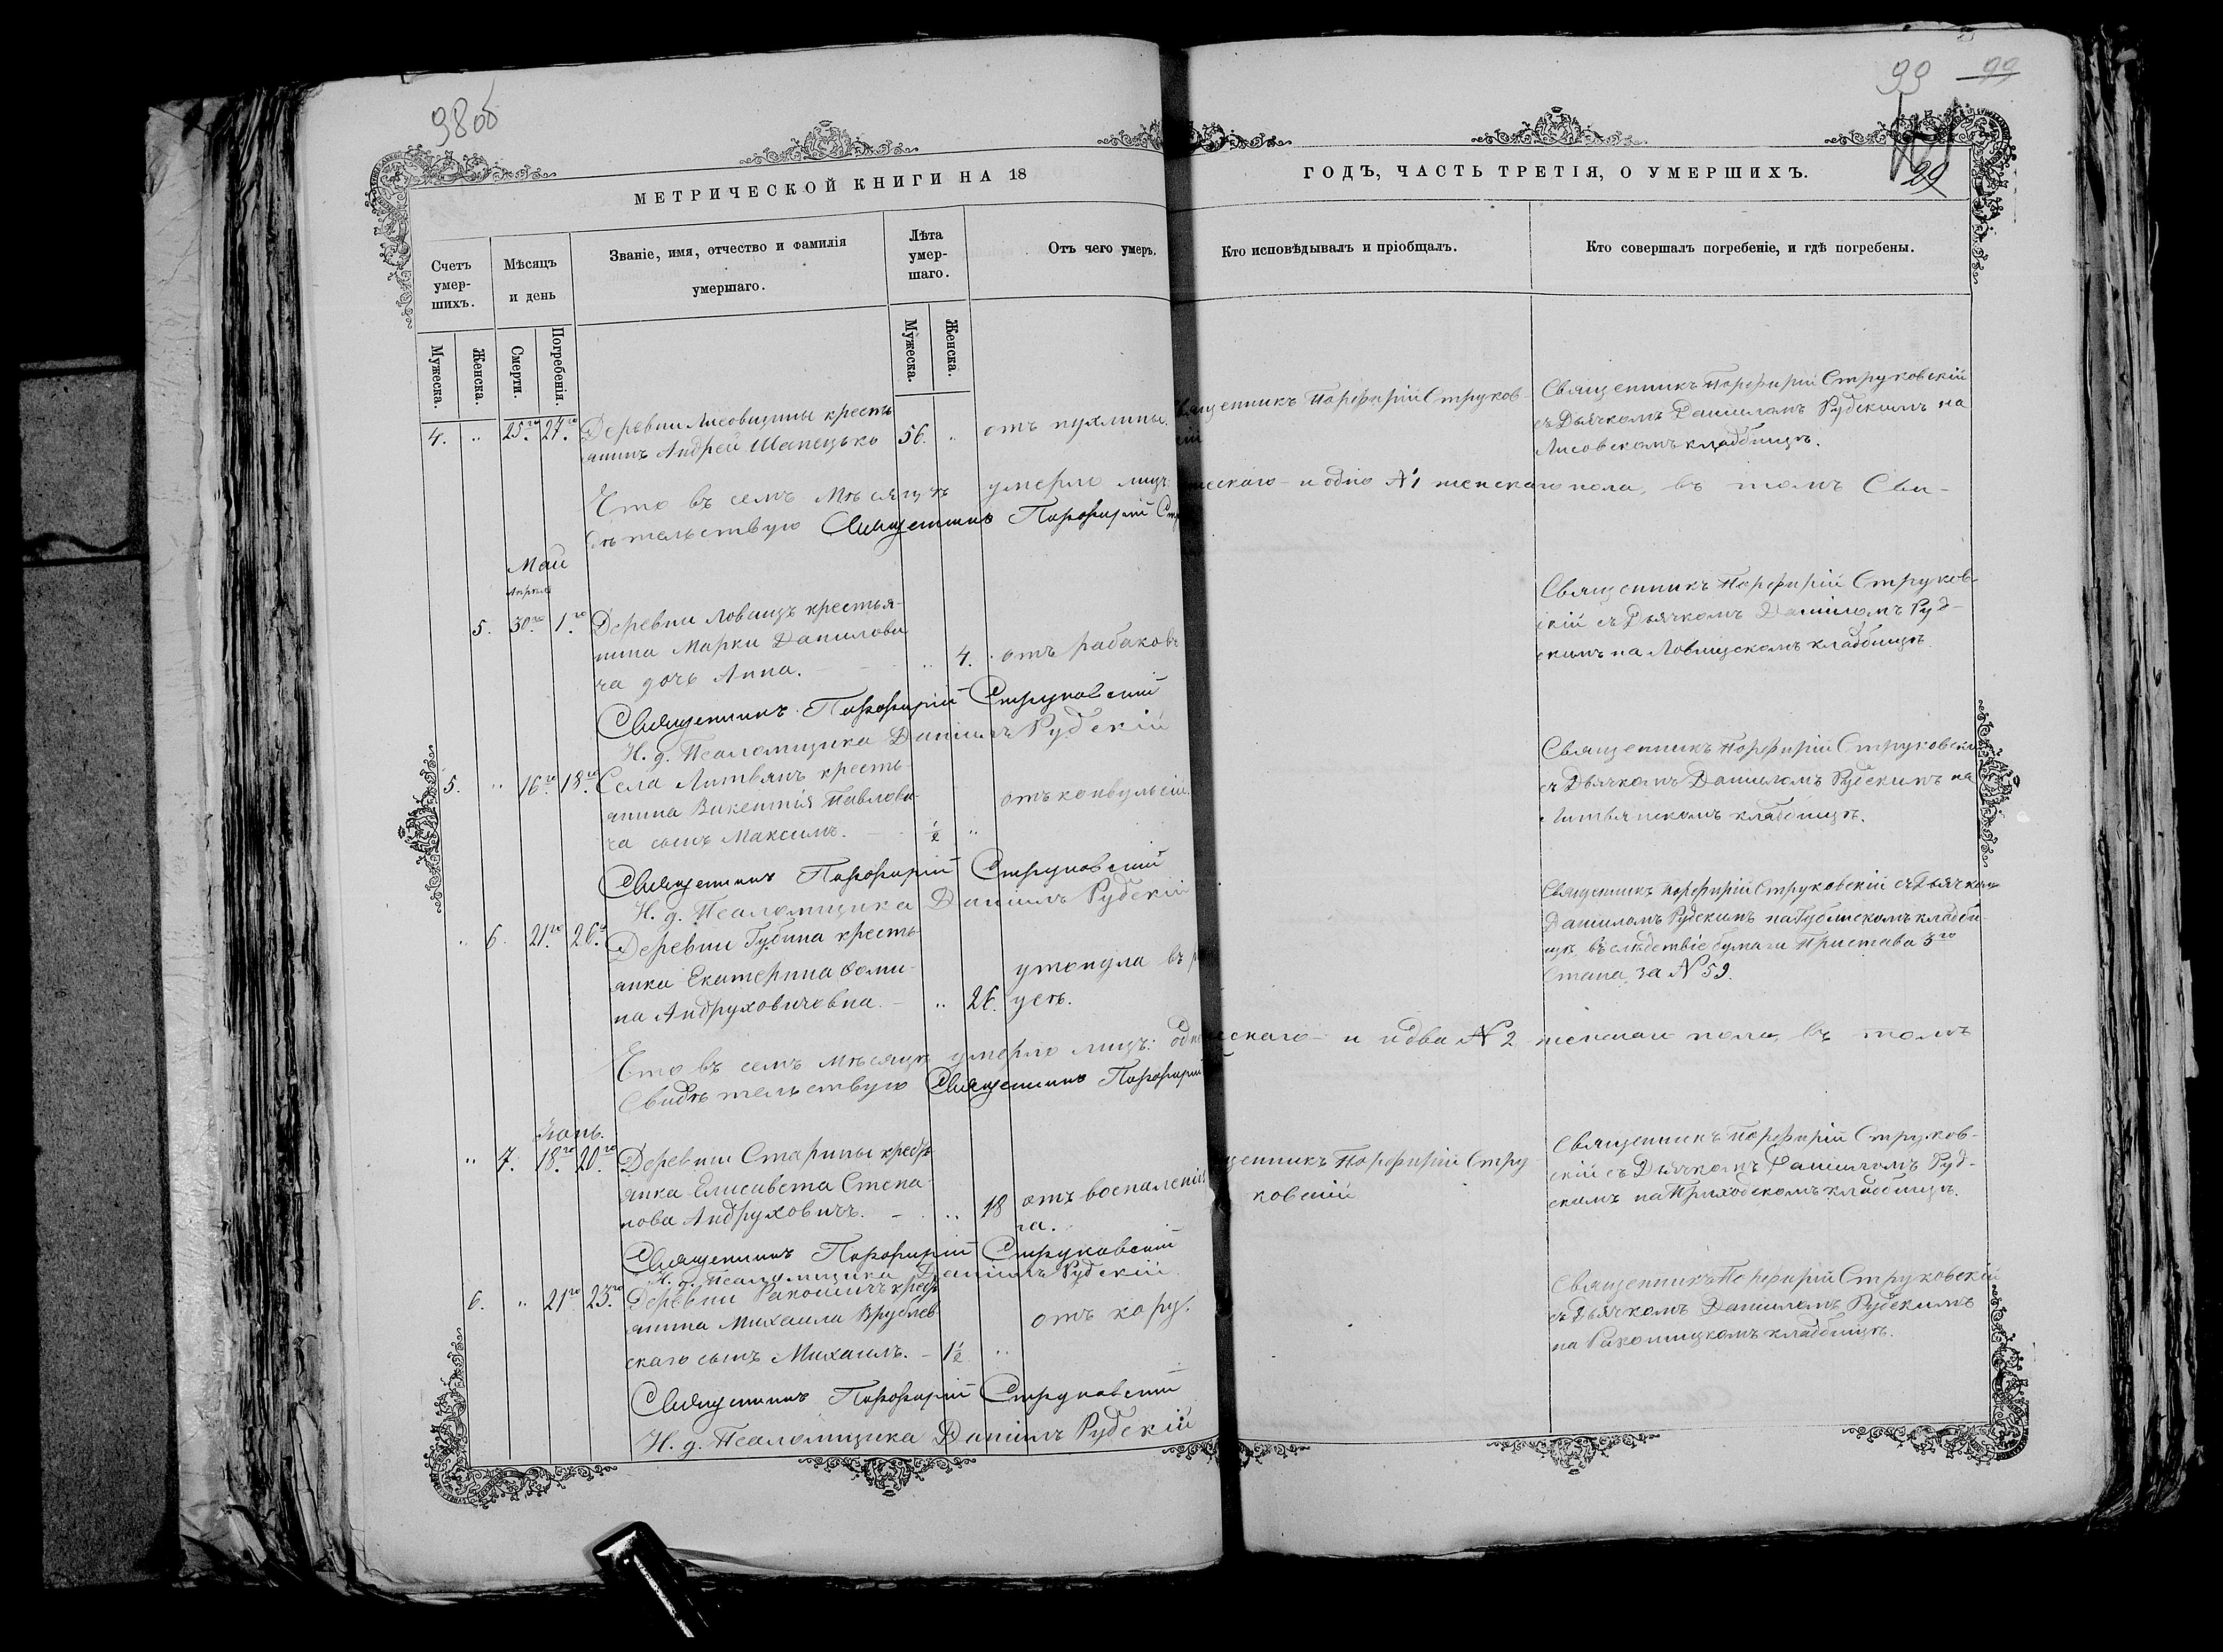 98об
99 99
29
МЕТРИЧЕСКОЙ КНИГИ НА 18 ГОДЪ, ЧАСТЬ ТРЕТІЯ, О УМЕРШИХЪ.
Счетъ умер-шихъ.
Мѣсяцъ и день
Званіе, имя, отчество и фамилія умершаго.
Лѣта умер-шаго.
Отъ чего умеръ.
Кто исповѣдывалъ и пріобщалъ.
Кто совершалъ погребеніе, и гдѣ погребены.
Мужеска. Женска. Смерти. Погребенія. Мужеска. Женска.
4. „ 25.го 27.го Деревни Лисовщины кресть-
янинъ Андрей Шапецько 56. „
отъ пухлины.
Священникъ Порфирій Струков-
скій
Священникъ Порфирій Струковскій
съ Дьячкомъ Даниломъ Рудскимъ на
Лисовскомъ кладбищѣ.
Что въ семъ мѣсяцѣ умерло лицъ ческаго – и одно №1 женскаго пола, въ томъ Сви-
дѣтельствую Священникъ Порфирій
Май
Апрѣля
5. 30.го 1.го Деревни Ловищъ крестья-
нина Марка Данилови-
ча дочь Анна. „ 4.
отъ рабаковъ
Священникъ Порфирій Струков-
скій съ Дьячкомъ Даниломъ Руд-
скимъ на Ловищскомъ кладбищѣ.
Священникъ Порфирій Струковскій
И. д. Псаломщика Данилъ Рудскій
5. „ 16.го 18.го Села Литвянъ кресть-
янина Викентія Павлови-
ча сынъ Максимъ. ½ „
отъ конвульсіи.
Священникъ Порфирій Струковскі
съ Дьячкомъ Даниломъ Рудскимъ на
Литвянскомъ кладбищѣ.
Священникъ Порфирій Струковскій
И. д. Псаломщика Данилъ Рудскій
„ 6. 21.го 26. Деревни Губина кресть-
янка Екатерина Фоми-
на Андруховичовна. – „ 26.
утонула въ
Священникъ Порфирій Струковскій съ Дьячкомъ
Даниломъ Рудскимъ на Губинскомъ кладби-
щѣ въ слѣдствіе бумаги Пристава 3го
Стана за №59.
Что въ семъ мѣсяцѣ умерло лицъ: одно ческаго – и два №2 женскаго пола, въ томъ
Свидѣтельствую Священникъ Порфирій
Іюнь.
„ 7. 18.го 20.го Деревни Старины кресть-
янка Елисавета Степа-
нова Андруховичъ. – „ 18
отъ воспаленія
щенникъ Порфирій Стру-
ковскій
Священникъ Порфирій Струков-
скій съ Дьячкомъ Даниломъ Руд-
скимъ на Приходскомъ кладбищѣ.
Священникъ Порфирій Струковскій
И. д. Псаломщика Данилъ Рудскій
6. „ 21го 23.го Деревни Ракошичъ крест-
янина Михаила Врублев-
скаго сынъ Михаилъ. – 1½ „
отъ кору.
Священникъ Порфирій Струковскій
съ Дьячкомъ Даниломъ Рудскимъ
на Ракошицкомъ кладбищѣ.
Священникъ Порфирій Струковскій
И. д. Псаломщика Данилъ Рудскій